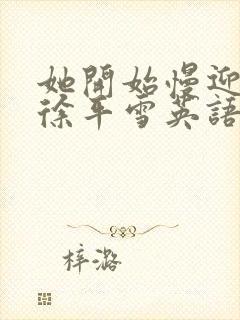 她開始慢迎
徐平雪英語
梓潞